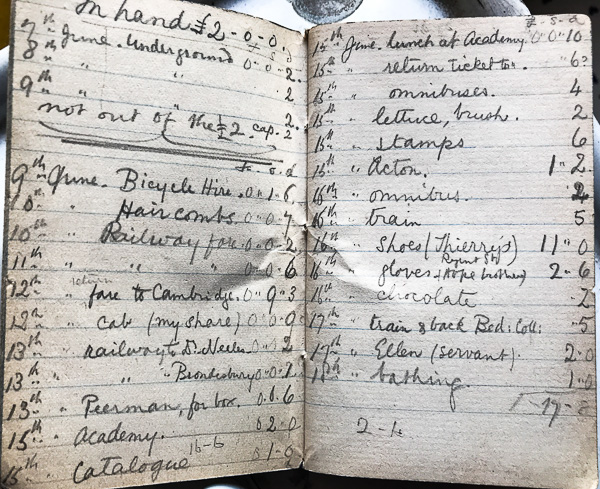 In hand £2-0-0.
£ s d
7th June. Underground 0"0"2.
8th " " 2
9th " " 2.
not out of the £2. cap. 2
£ s d
9th June. Bicycle Hire. 0"1"6.
10th " Hair combs. 0"0"7
10th " Railway fare. 0"0"2
11th " " " 0"0"6
12th " return fare to Cambridge. 0"9"3
12th " cab (my share) 0"0"9
13th " railway to 0"0"2
13th " " " Brondesbury 0"0"1
13th " Peerman, for box. 0.0.6
15th " Academy. 0 2.0
15th Catalogue 0"1-
16-6
£ s d
15th June. lunch at Academy. 0"0"10
15th " return ticket to 6
15th " omnibuses. 4
15th " lettuce, brush. 2
15th " stamps 6
15th " Acton. 1"2.
16th " omnibus. 2
16th " train 5
16th " Shoes (Thierry's) 11"0
Regent St
16th " gloves (Hope brothers) 2-6
16th " chocolate 2
17th " train & back Bed: Coll: 5
17th " Ellen (servant). 2.0
" bathing 1.0
1-17-8
2-1